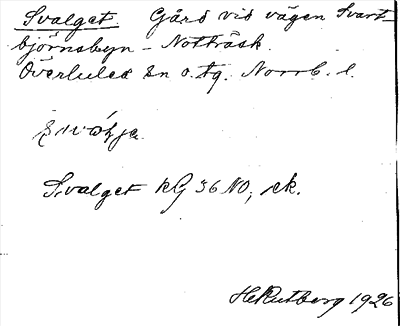 Svalget. Gård vid vägen Svart-
björnsbyn - Notträsk.
Överluleå sn o. tg. Norrb. l.
Svalget kG 36 NO, ek.
H Rutberg 1926